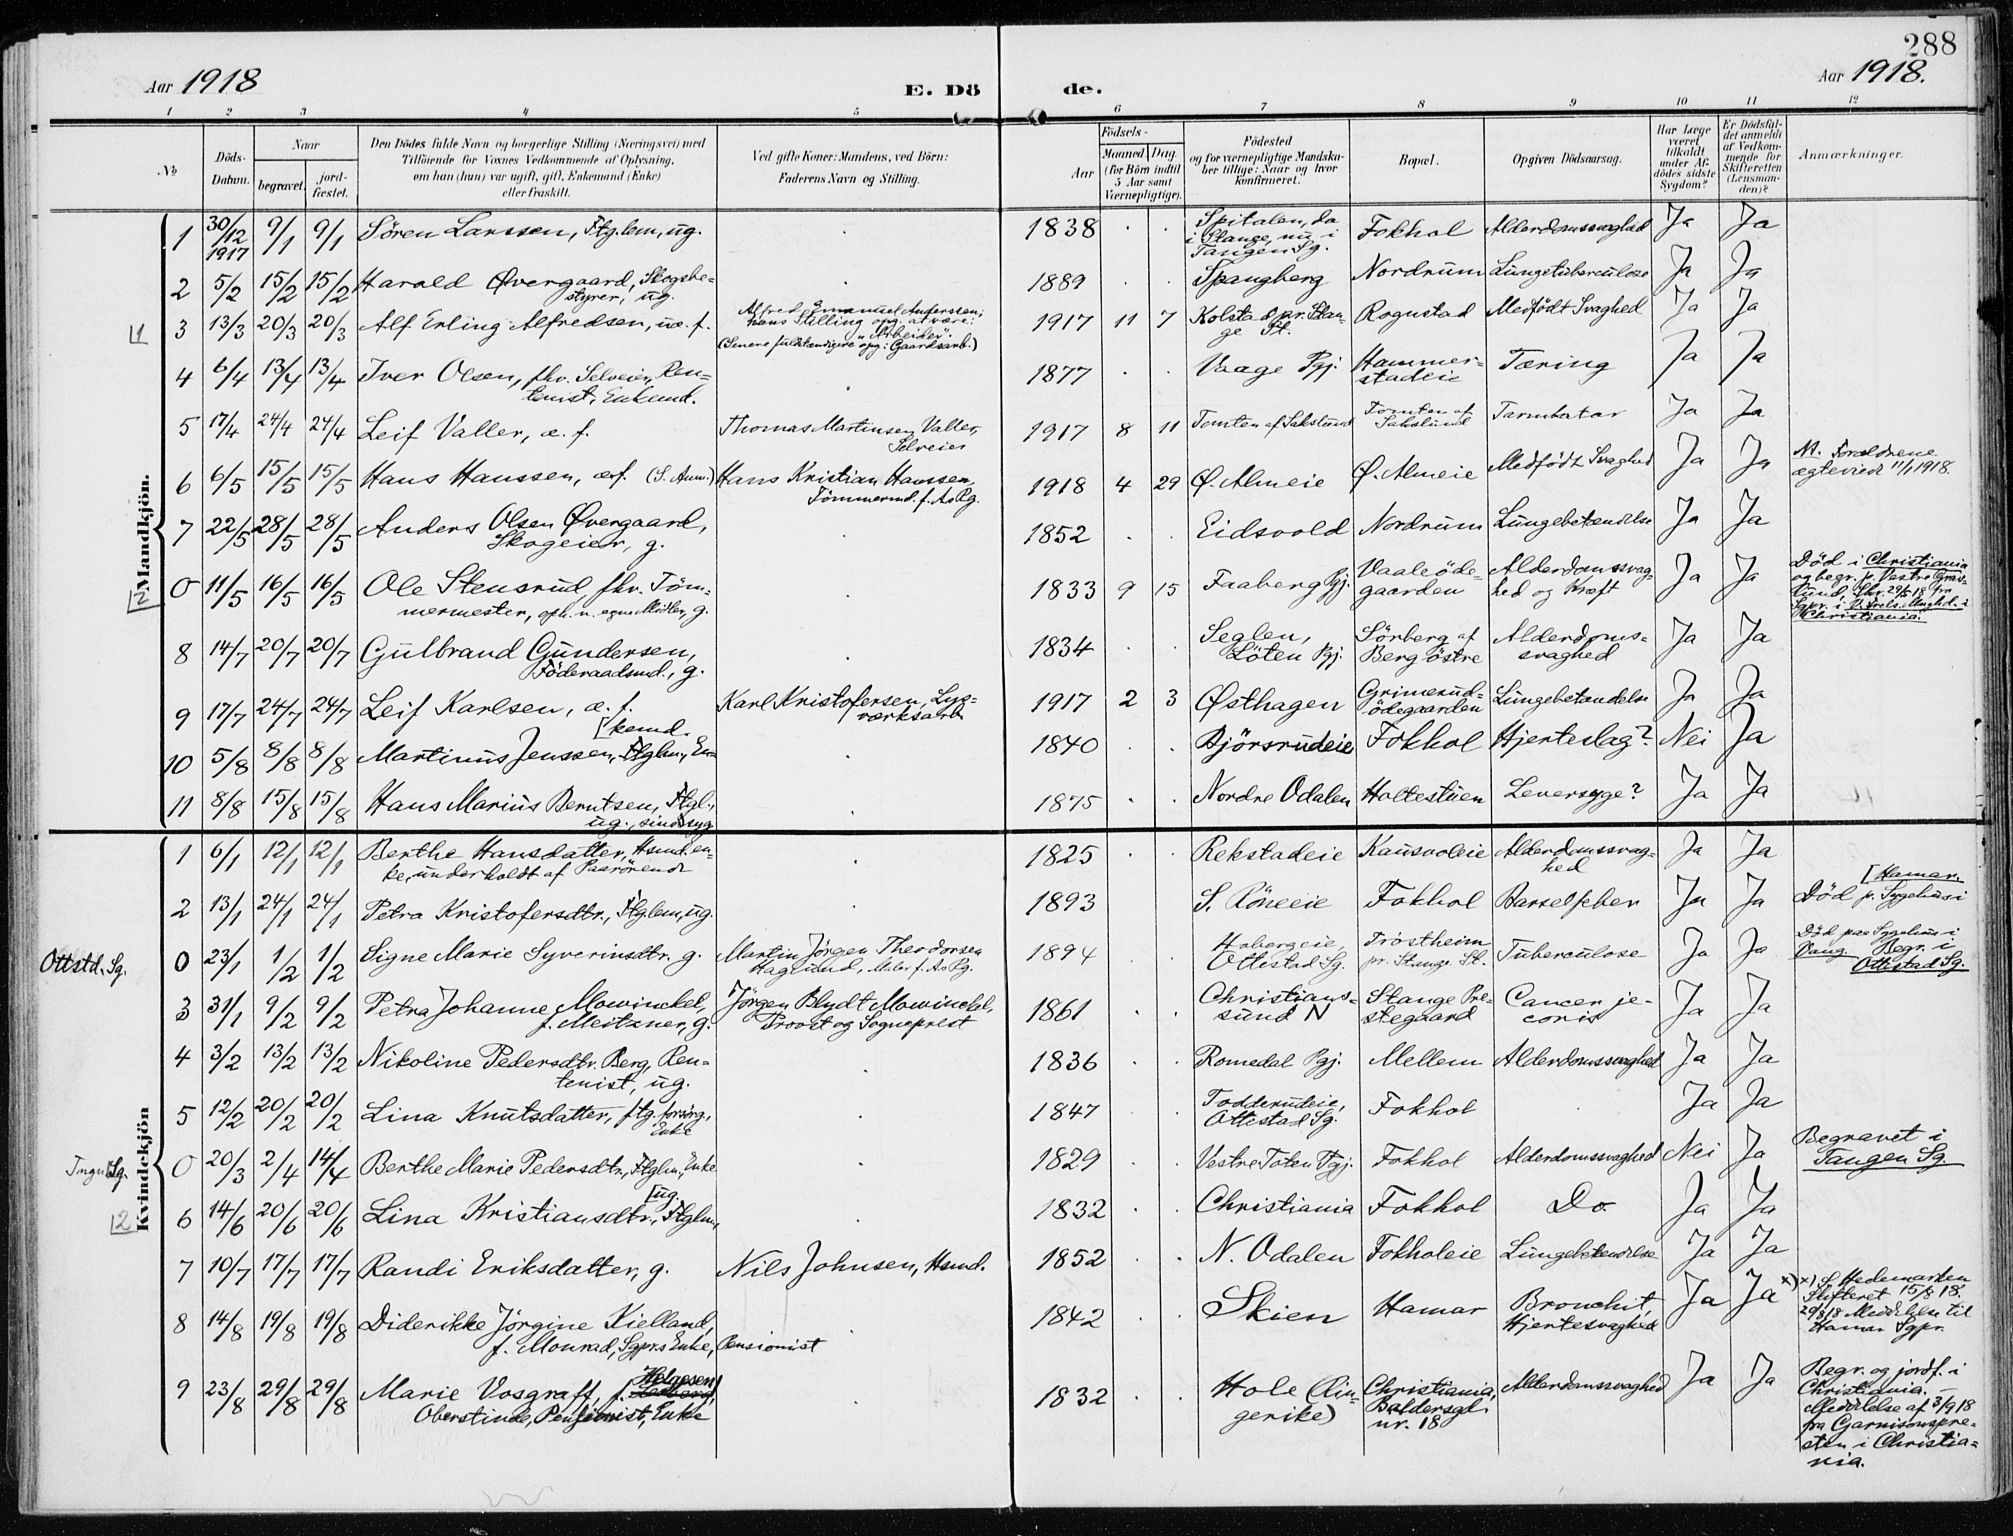 288
Aar 1918
E. Dö de.
Aar 1918.
1 2 3 4 5 6 7 8 9 10 11 12
No
Döds-Datum.
Naar
begravet.
jord-fæstet.
Den Dödes fulde Navn og borgerlige Stilling (Næringsvei) med
Tilföiende for Voxnes Vedkommende af Oplysning,
om han (hun) var ugift, gift, Enkemand (Enke)
eller fraskilt.
Ved gifte Koner: Mandens, ved Börn:
Faderens Navn og Stilling.
Födsels-
Aar
Maaned Dag
(for Börn indtil
5 Aar samt
Værnepligtige).
Födested
og for værnepligtige Mandska-
ber tillige: Naar og hvor
konfirmeret.
Bopæl.
Opgiven Dödsaarsag.
Har Læge
været
tilkaldt
under Af-
dödes sidste
Sygdom?
Er Dödsfal-
det anmeldt
af Vedkom-
mende for
Skifteretten
(Lensman-
den)?
Anmærkninger.
Mandkjön.
1 30/12 1917 9/1 9/1 Sören Larssen, Ftg.lem, ug. 1838 Spitalen, da i Stange, nu i Tangen Sg. Fokhol Alderdomssvaghed Ja Ja
2 5/2 15/2 15/2 Harald Øvergaard, Skogbe-
styrer, ug. 1889 Spangberg Nordrum Lungetuberculose Ja Ja
3 13/3 20/3 20/3 Alf Erling Alfredsen, u. f. Alfred Emanuel Anderssen;
hans Stilling opg. at være:
"Arbeider".
(Senere fuldstændigere opg: Gaardsarb.) 1917 11 7 Kolstad pr. Stan-
ge St. Rognstad Medfödt Svaghed Ja Ja
4 6/4 13/4 13/4 Iver Olsen, fhv. Selveier, Ren-
tenist, Enkemd. 1877 Vaage Pgj. Hammer-
stadeie Tæring Ja Ja
5 17/4 24/4 24/4 Leif Valler, æ. f. Thomas Martinsen Valler,
Selveier 1917 8 11 Tomten af Sakslund Tomten af
Sakslund Tarmkatar Ja Ja
6 6/5 15/5 15/5 Hans Hanssen, æf. (S. Anm.) Hans Kristian Hanssen,
Tömmermd. f. As Pg. 1918 4 29 Ø. Almeie Ø. Almeie Medfödt Svaghed Ja Ja Forældrene
ægteviede 11/1 1918.
7 22/5 28/5 28/5 Anders Olsen Øvergaard,
Skogeier, g. 1852 Eidsvold Nordrum Lungebetændelse Ja Ja
0 11/5 16/5 16/5 Ole Stensrud, fhv. Töm-
mermester, oph. v. egne Midler, g. 1833 9 15 Faaberg Pgj. Vaaleöde-
gaarden Alderdomssvag-
hed og Kræft Ja Ja Död i Christiania
og begr. p. Vestre Grav-
lund, Skr. 29/5 18 fra
Sgpr. i
Christiania.
8 14/7 20/7 20/7 Gulbrand Gundersen,
Föderaadsmd., g. 1834 Seglen,
Löten Pgj. Sörberg af
Berg östre Alderdoms-
svaghed Ja Ja
9 17/7 24/7 24/7 Leif Karlsen, æ. f. Karl Kristofersen, Lys-
værksarb. 1917 2 3 Østhagen Grimerud-
ödegaarden Lungebetændelse Ja Ja
10 5/8 8/8 8/8 Martinus Jenssen, Ftglm., En-
[kemd. 1840 Björsrudeie Fokhol Hjerteslag? Nei Ja
11 8/8 15/8 15/8 Hans Marius Berntsen, Ftgl.,
ug., sindssyg 1875 Nordre Odalen Holtestuen Leversyge? Ja Ja
Kvindekjön
1 6/1 12/1 12/1 Berthe Hansdatter, Hsmd.en-
ke, underholdt af Paarörende 1825 Rekstadeie Kausvoleie Alderdomssvag-
hed Ja Ja
2 13/1 24/1 24/1 Petra Kristofersdtr., Ftglem, ug. 1893 S. Röneeie Fokhol Barselfeber Ja Ja Död p. Sygehus i
[Hamar.
Ottstd. Sg. 0 23/1 1/2 1/2 Signe Marie Syverinsdtr, g. Martin Jörgen Theodorsen
Haglund, Maler f. As Pg. 1894 Hobergeie,
Ottestad Sg. Tröstheim
pr. Stange St. Tuberculose Ja Ja Död paa Sygehus i
Vang. Begr. i
Ottestad Sg.
3 31/1 9/2 9/2 Petra Johanne Mowinckel,
f. Meitzner, g. Jörgen Blydt Mowinckel,
Provst og Sogneprest 1861 Christians-
sund N Stange Pre-
stegaard Cancer je-
coris Ja Ja
4 3/2 13/2 13/2 Nikoline Pedersdtr. Berg, Ren-
tenist, ug. 1836 Romedal Pgj. Mellem Alderdomssvaghed Ja Ja
5 12/2 20/2 20/2 Lina Knutsdatter, ftg. forsörg.,
Enke 1847 Todderudeie,
Ottestad Sg. Fokhol Ja Ja
Tngn. Sg. 0 20/3 2/4 14/4 Berthe Marie Pedersdtr., Ftglm., Enke 1829 Vestre Toten Pgj. Fokhol Alderdomssvaghed Nei Ja Begravet i
Tangen Sg.
6 14/6 20/6 20/6 Lina Kristiansdtr., Ftglm.,
[ug. 1832 Christiania Fokhol Do. Ja Ja
7 10/7 17/7 17/7 Randi Eriksdatter, g. Nils Johnsen, Hsmd. 1852 N. Odalen Fokholeie Lungebetændelse Ja Ja
8 14/8 19/8 19/8 Diderikke Jörgine Kielland,
f. Monrad, Sgprs Enke, Pensionist 1842 Skien Hamar Bronchit,
Hjertesvaghed Ja Ja x) x) S. Hedemarken
Skifteret 15/8 18.
20/8 18 Meddelelse til
Hamar Sgpr.
9 23/8 29/8 29/8 Marie Vosgraff, f. Helgesen,
Oberstinde, Pensionist, Enke 1832 Hole (Rin-
gerike) Christiania,
Baldersgd.
nr. 18 Alderdomssvaghed Ja Ja Begr. og jordf. i
Christiania. —
Meddelelse af 3/9 18
fra Garnisonspre-
sten i Christia-
nia.